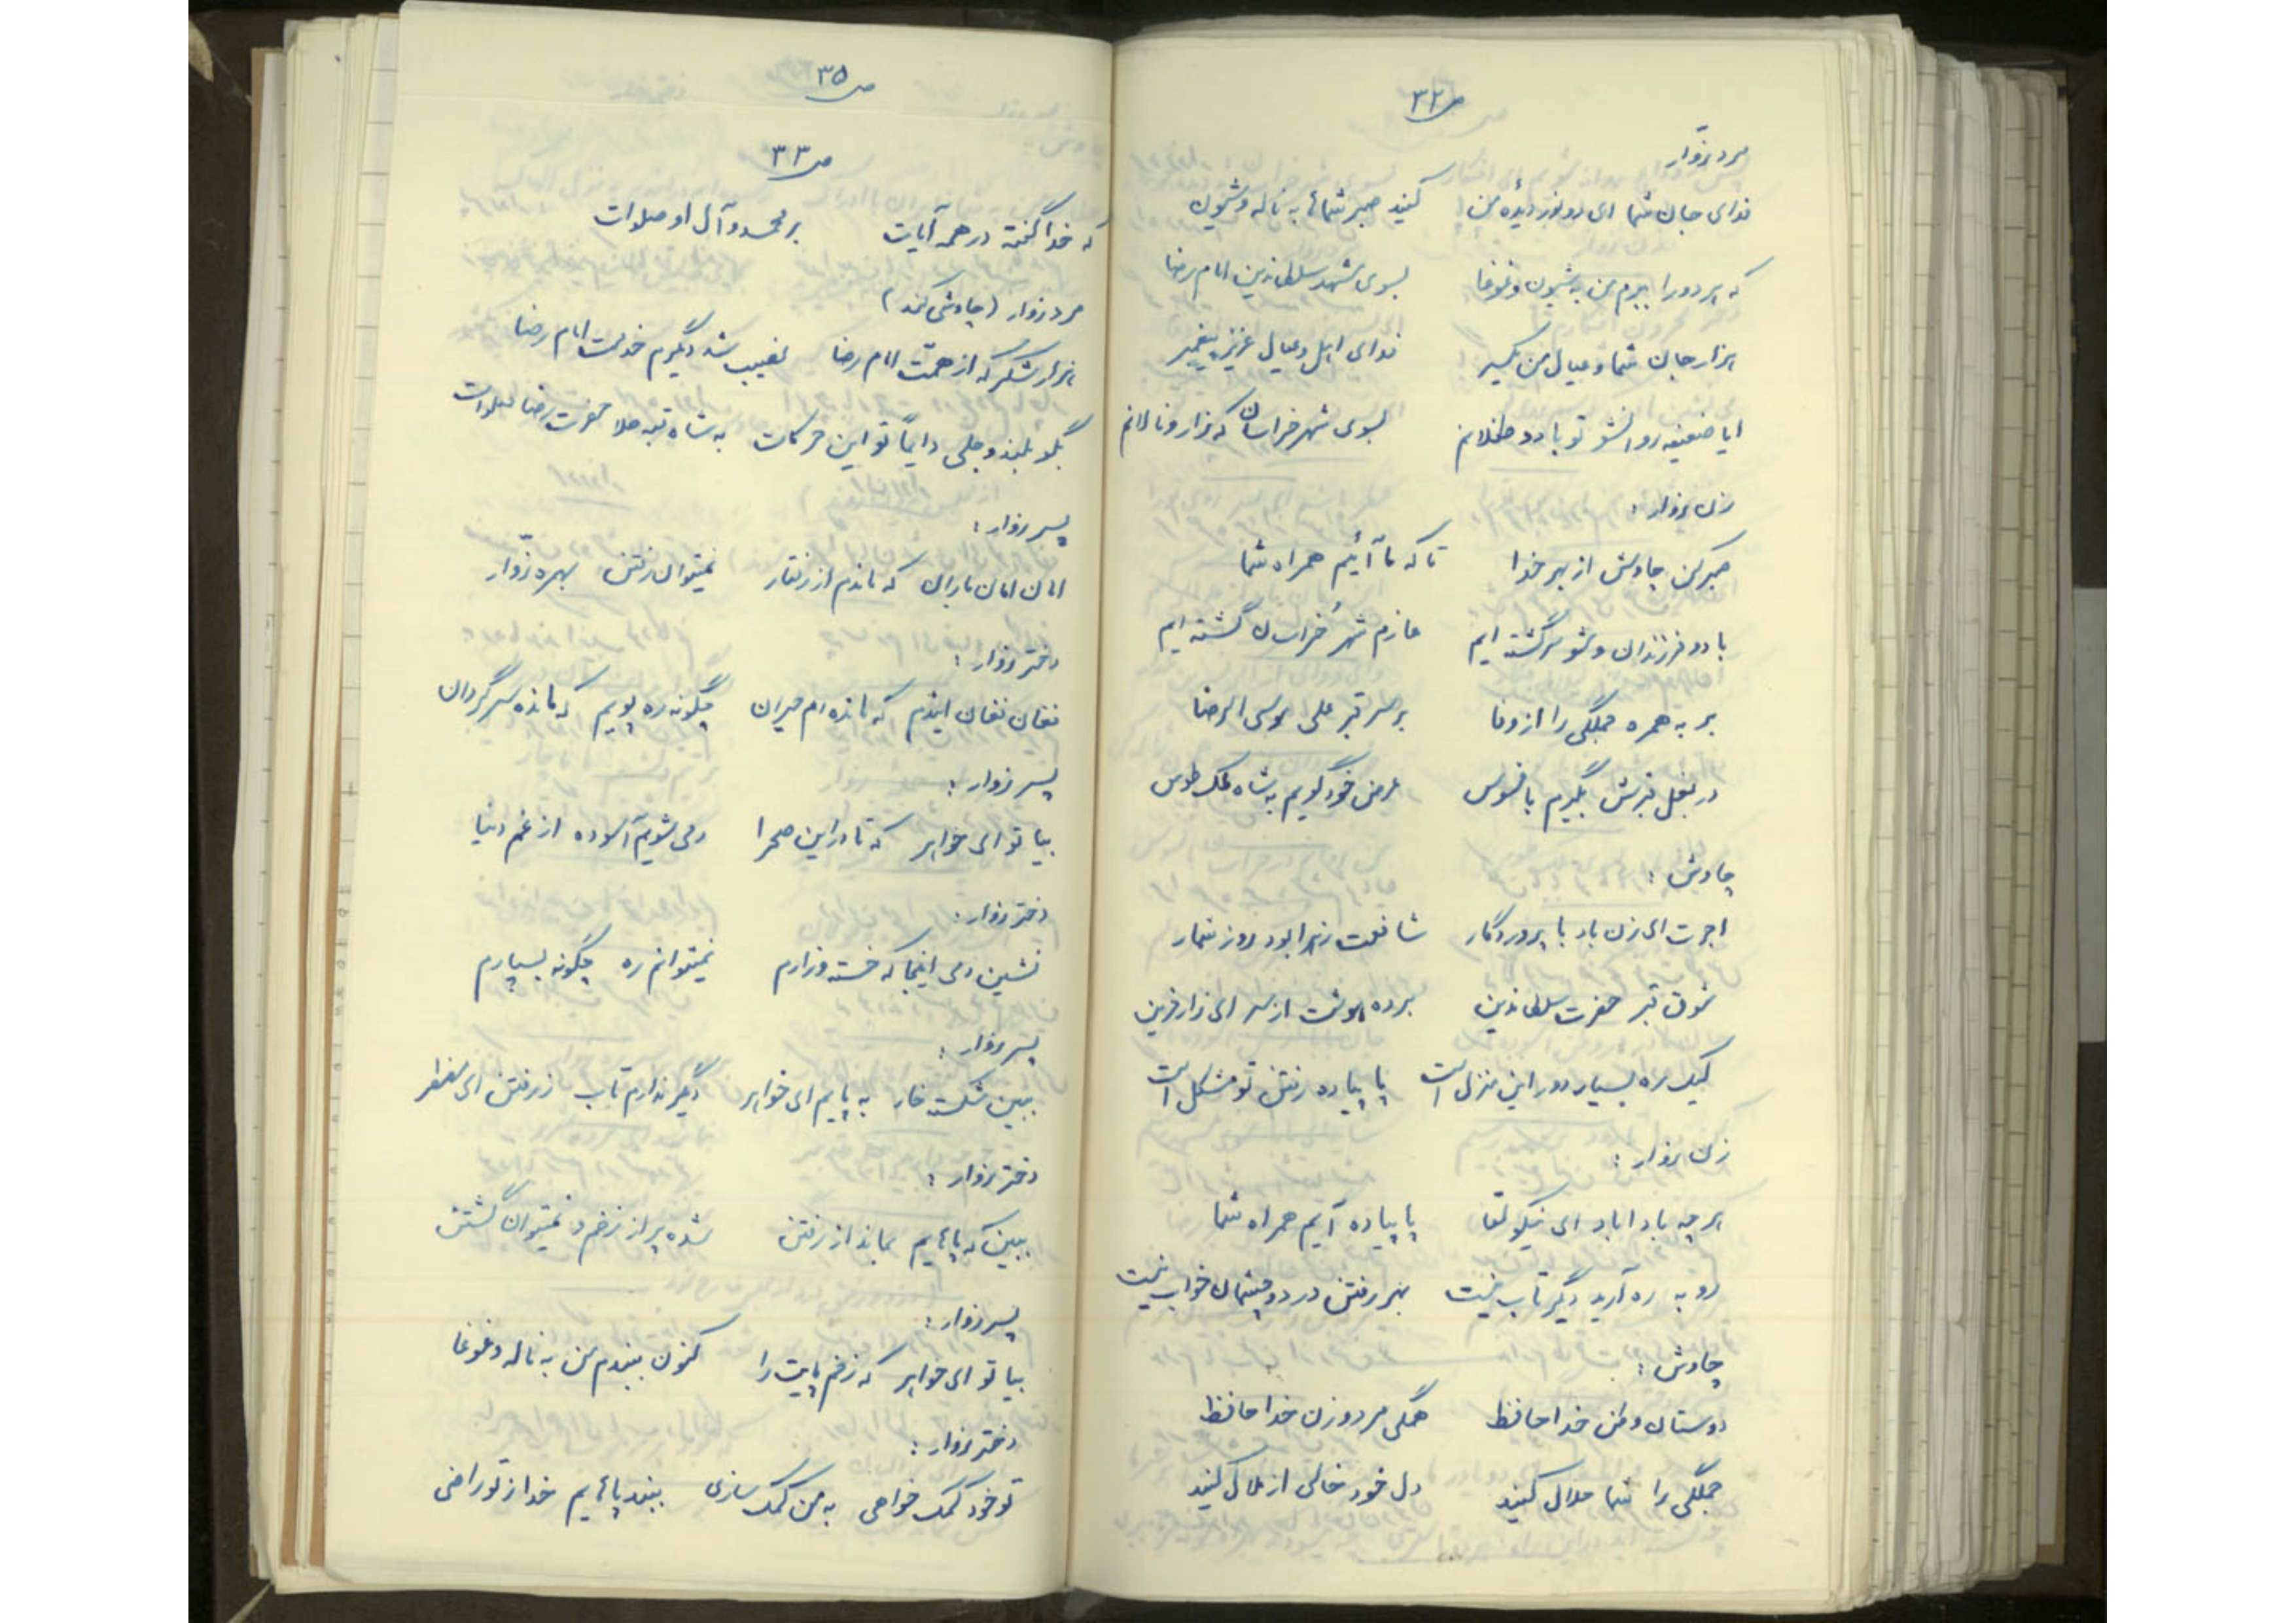 ص ۳۲
مرد زوّار
فدای جان شما ای دو نور دیدهٔ من کنید صبر شماها به ناله و شیون
که هر دو را ببرم من به شیون و غوغا بسوی مشهد سلطاندین امام رضا
هزار جان شما و عیال من یکسر فدای اهل و عیال عزیز پیغمبر
ایا ضعیفه روانشو تو با دو طفلانم بسوی شهر خراسان که زار و نالانم
زن زوار :
صبر کن چاوش از بهر خدا تا که ما آئیم همراه شما
با دو فرزندان و شو سرگشته ایم عازم شهر خراسان گشته ایم
بر به همره جملگی را از وفا بر سر قبر علی موسی الرضا
در بغل قبرش بگیرم با فسوس عرض خود گویم به شاه ملک طوس
چاوش :
اجرت ای زن باد با پروردگار شافعت زهرا بود روز شمار
شوق قبر حضرت سلطاندین برده هوشت از سر ای زار قرین
لیک ره بسیار دور این منزل است پا پیاده رفتن تو مشکل است
زن زوار :
هر چه بادا باد ای نیکو لقا پا پیاده آیم همراه شما
رو به ره آرید دیگر تاب نیست بهر رفتن در دو چشمان خواب نیست
چاوش :
دوستان وطن خدا حافظ همگی مرد و زن خدا حافظ
جملگی را شما حلال کنید دل خود خالی از ملال کنید
ص ۳۵
ص ۳۳
که خدا گفته در همه آیات بر محمد و آل او صلوات
مرد زوار (چاوشی کند)
هزار شکر که از همّت امام رضا نصیب شد دیگرم خدمت امام رضا
بگو بلند و جلی دایماً تو این حرکات به شاه قبه طلا حضرت رضا صلوات
پسر زوار :
امان امان یاران که ماندم از رفتار نمیتوان رفتن بهره زوّار
دختر زوار :
فغان فغان ایندم که مانده ام حیران چگونه ره پویم که مانده سرگردان
پسر زوار :
بیا تو ای خواهر که تا در این صحرا دمی شویم آسوده از غم دنیا
دختر زوار :
نشین دمی اینجا که خسته و زارم نمیتوانم ره چگونه بسپارم
پسر زوار :
ببین شکسته خار به پایم ای خواهر دیگر ندارم تاب ز رفتن ای مضطر
دختر زوار :
ببین که پاهایم بماند از رفتن شده پر از زخم و نمیتوان گشتن
پسر زوار :
بیا تو ای خواهر که زخم پایت را کنون ببندم من به ناله و غوغا
دختر زوار :
تو خود کمک خواهی به من کمک سازی ببند پاهایم خدا ز تو راضی